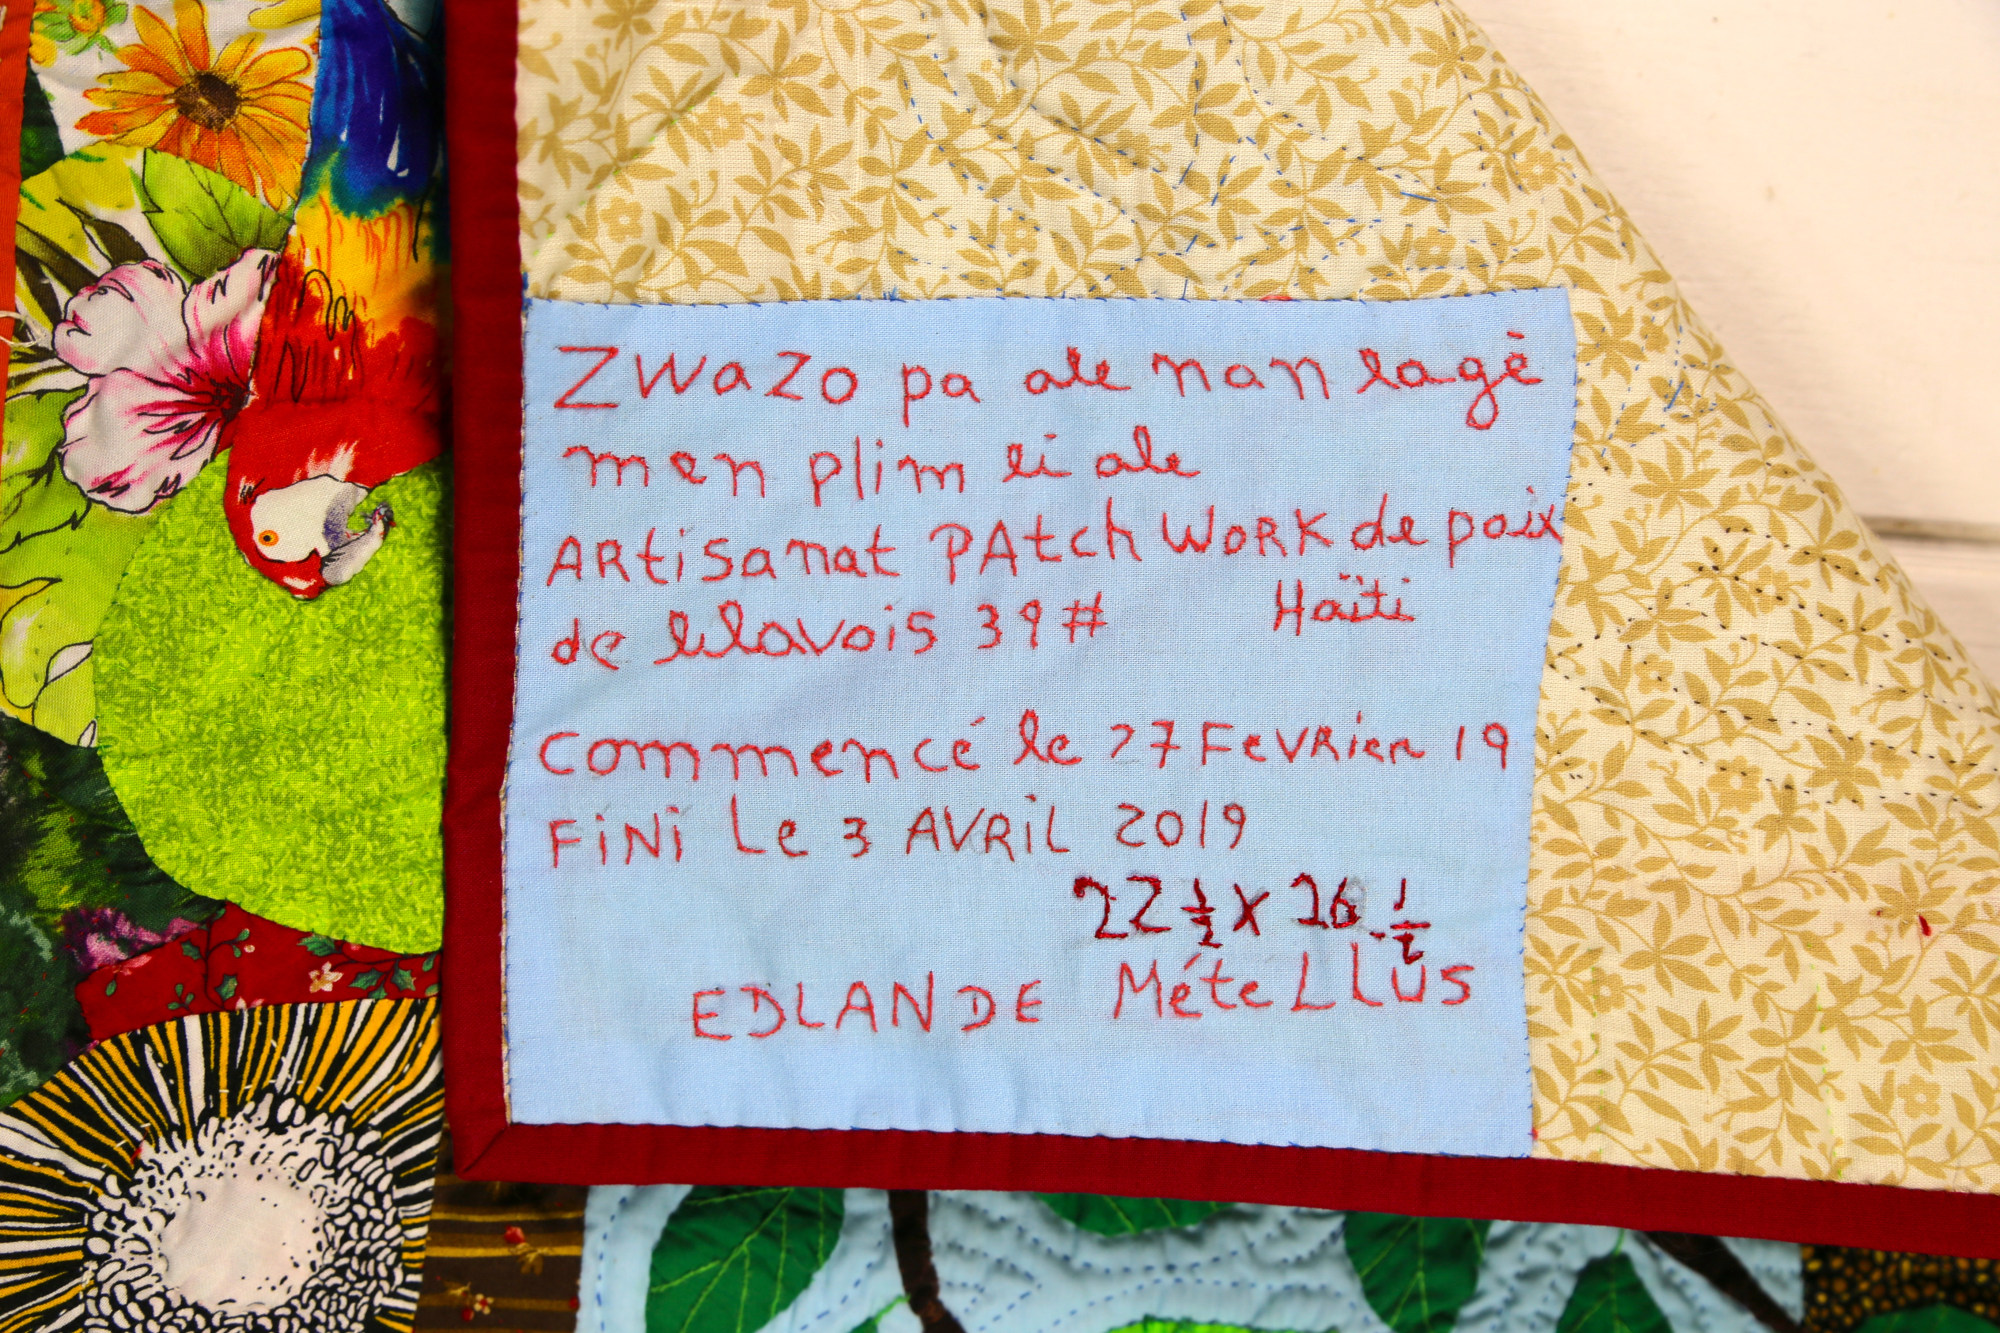 ZWaZo pa ale nan lagè
men plim li ale
ARtisanat PAtchWORK de paix
de lilavois 39# Haïti
Commencé le 27 FevRier 19
FiNi Le 3 AVRiL 2019
22 1/2 X 26 1/2
EDLANDE MéteLLUS